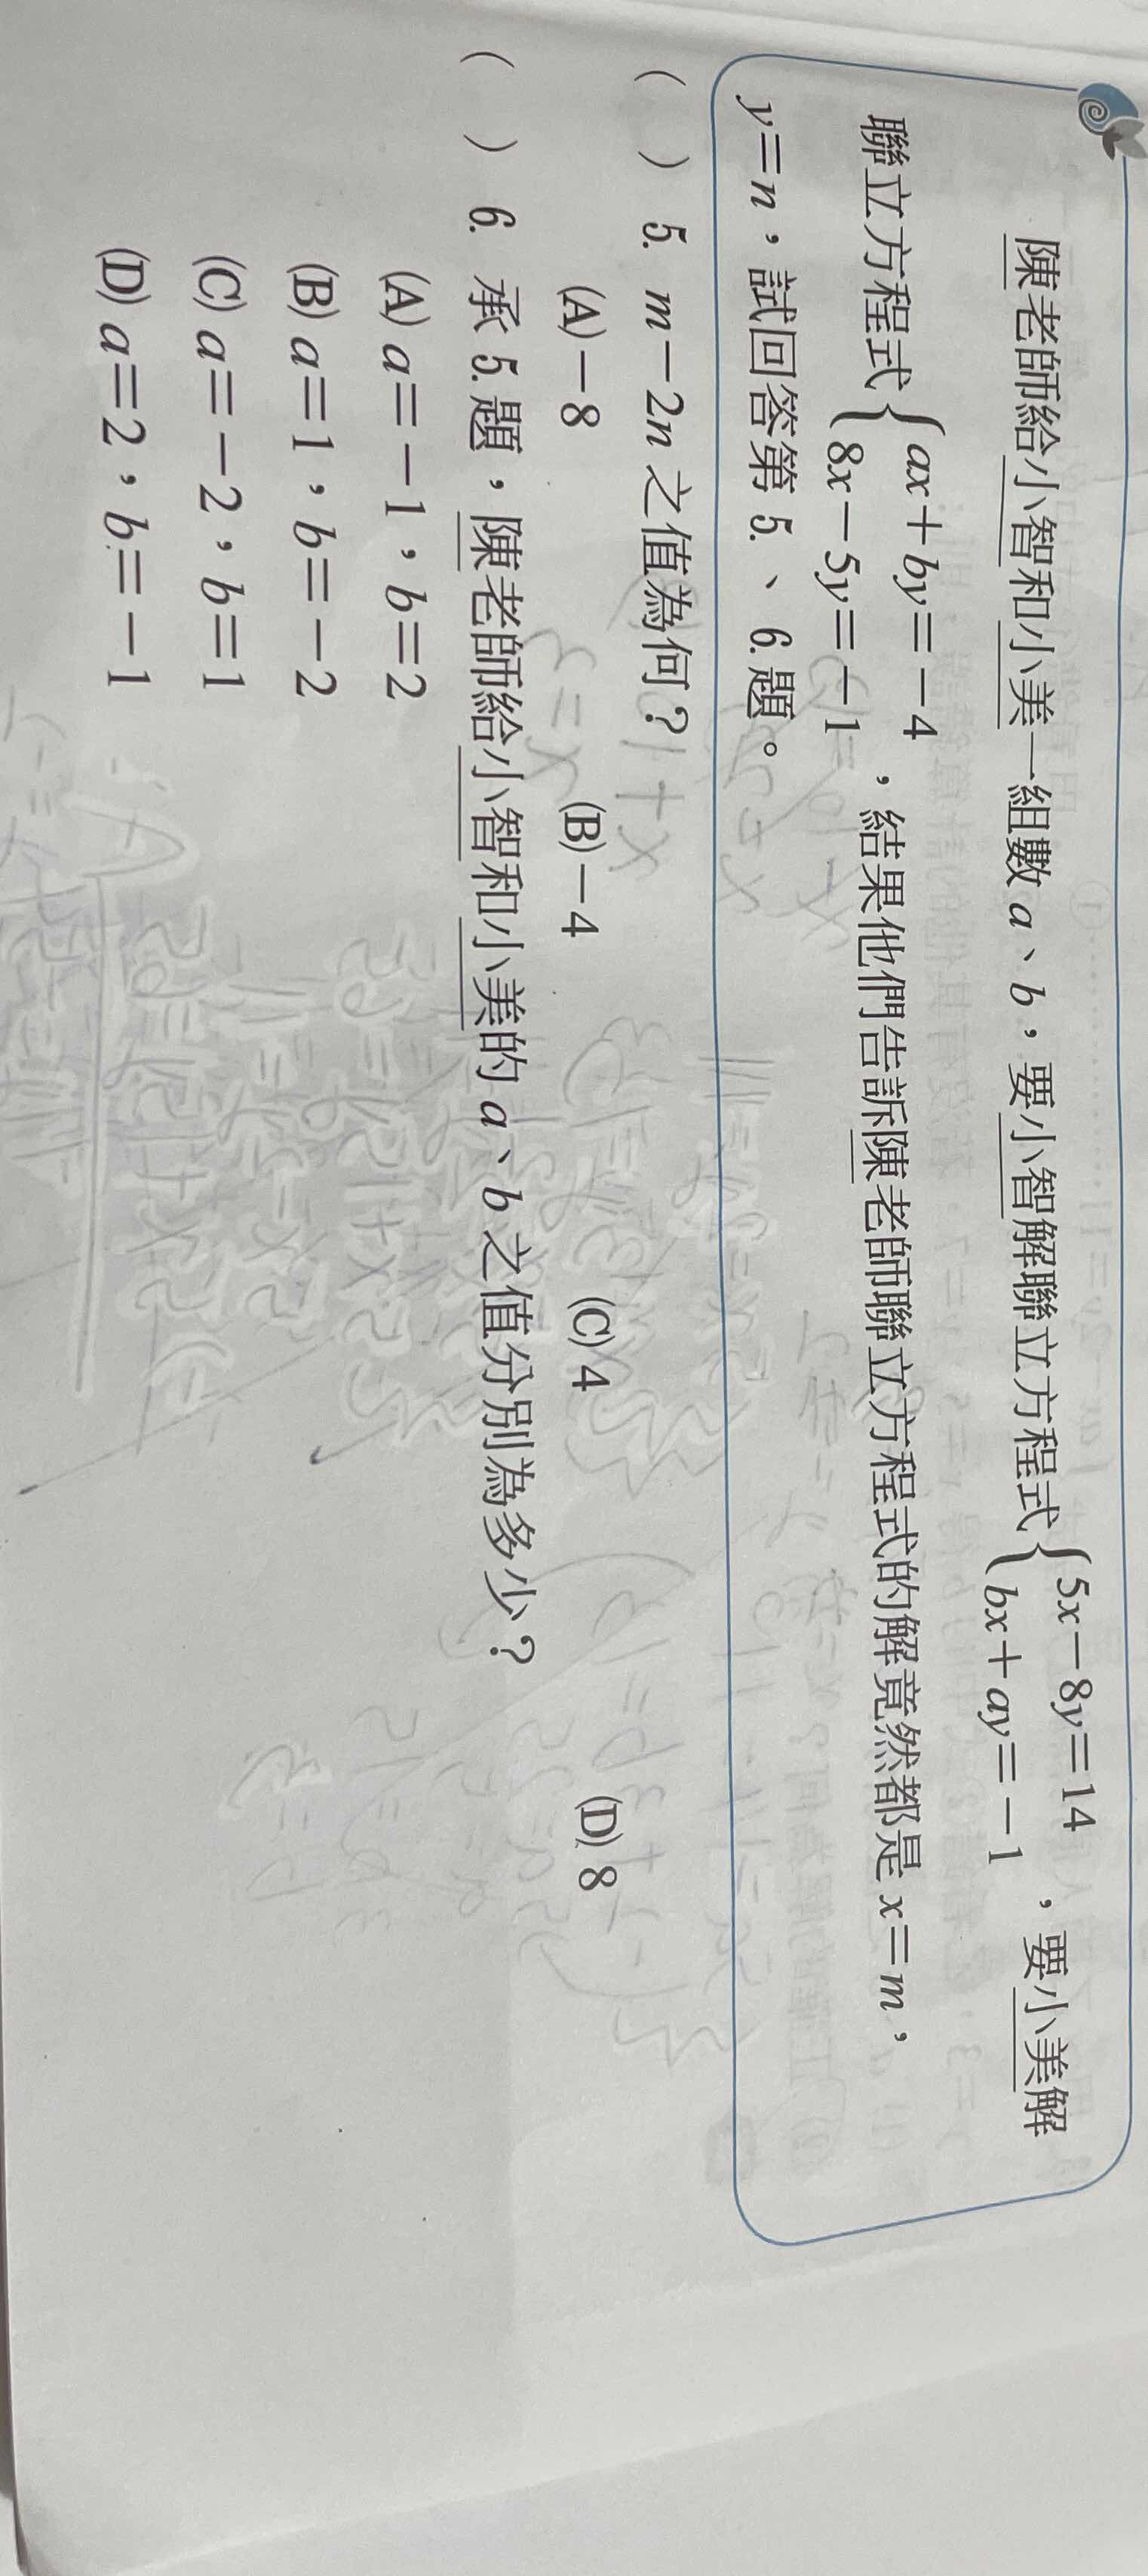 陳老師給小智和小美一組數a、b，要小智解聯立方程式{5x－8y＝14, bx＋ay＝－1，要小美解
聯立方程式{ax＋by＝－4, 8x－5y＝－1，結果他們告訴陳老師聯立方程式的解竟然都是x＝m，
y＝n，試回答第5.、6.題。
(　) 5. m－2n之值為何？
(A)－8　(B)－4　(C) 4　(D) 8
(　) 6. 承5.題，陳老師給小智和小美的a、b之值分別為多少？
(A) a＝－1，b＝2
(B) a＝1，b＝－2
(C) a＝－2，b＝1
(D) a＝2，b＝－1